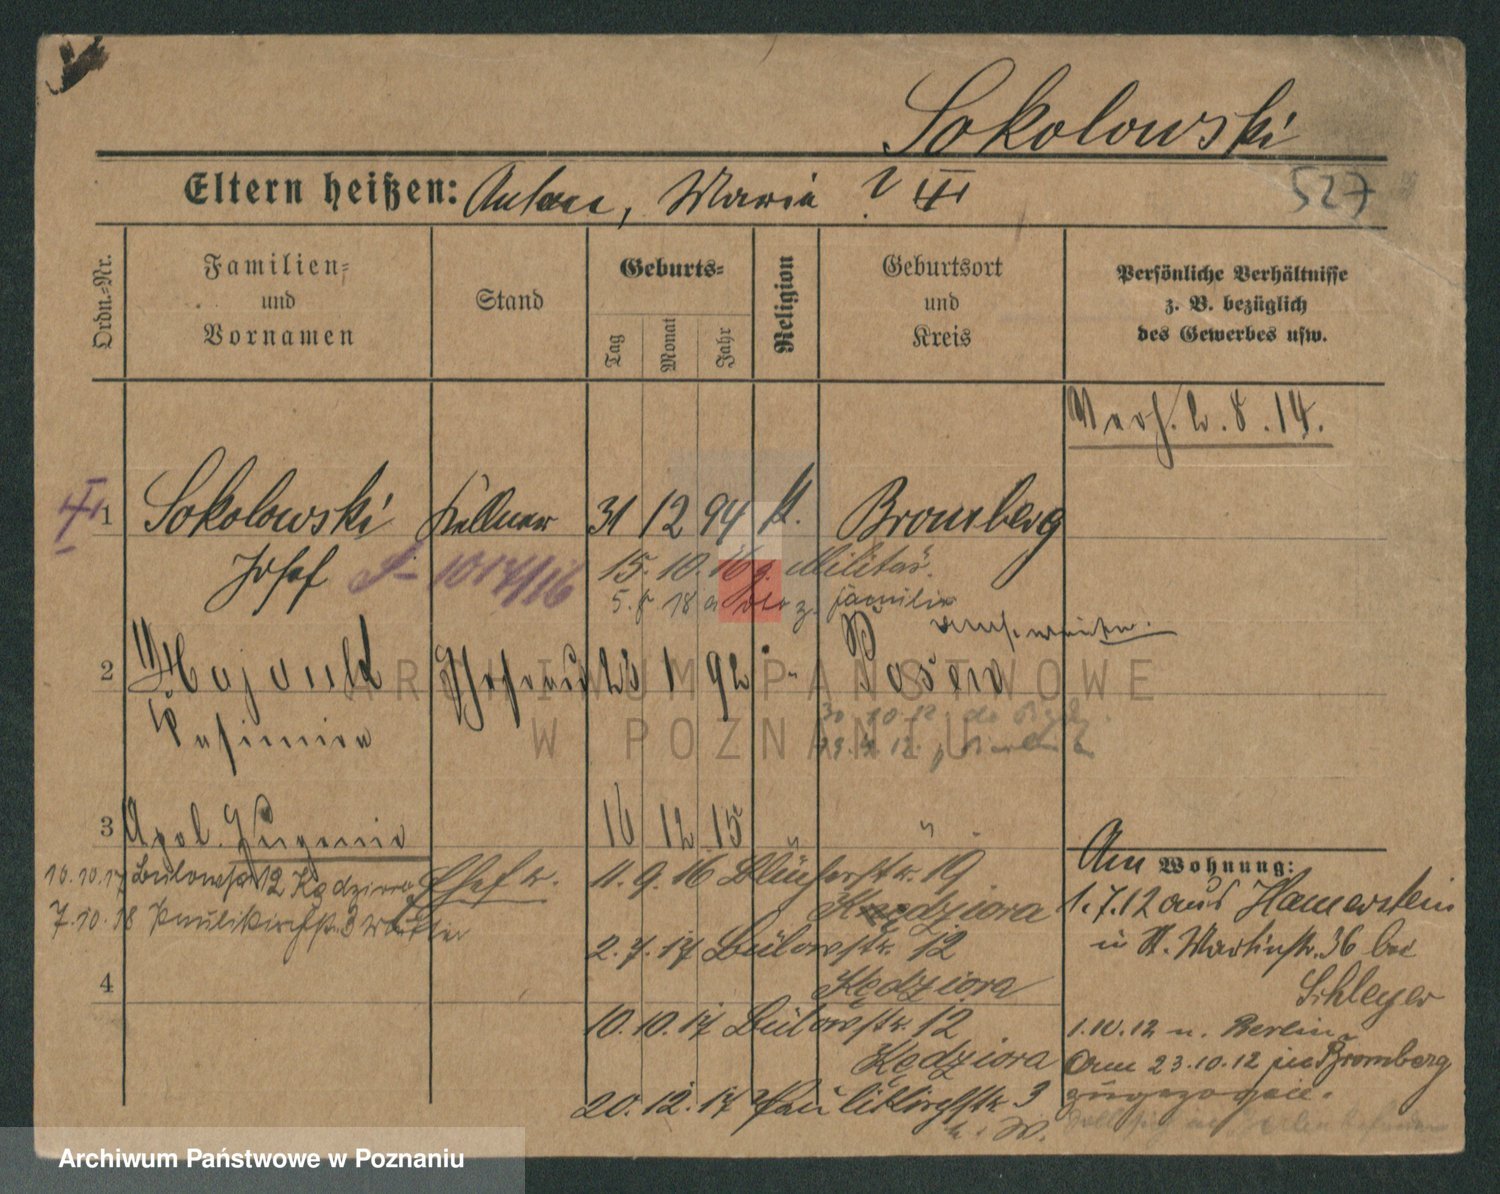 Sokolowski
Eltern heißen: Anton, Maria ? III
527
Ordn.-Nr.
Familien- und Vornamen
Stand
Geburts-
Tag
Monat
Jahr
Religion
Geburtsort und Kreis
Persönliche Verhältnisse z. B. bezüglich des Gewerbes usw.
Verh. 2.8.14.
1 Sokolowski Kellner 31 12 94 k. Bromberg
Josef 1017/16 15.10.16 z. Militär.
5. 18 z. Familie
2 Ehefrau 23 1 92 " Posen
Kasimira
30.10.12
3 Apol. Eugenie 16 12 15 " "
Am Wohnung:
10.10.17 Bülowstr. 12 Kędziora Ehefr. 11.9.16 Blücherstr. 19
Kędziora
1.7.12 aus Hamerstein
7.10.18 Paulikirchstr. 3
2.7.17 Bülowstr. 12
in St. Martinstr. 36 bei
Kędziora
Schleyer
4
10.10.17 Bülowstr. 12
1.10.12 n. Berlin
Kędziora
Am 23.10.12 in Bromberg
20.12.17 Paulikirchstr. 3
zugezogen.
b. W.
ARCHIWUM PAŃSTWOWE
W POZNANIU
Archiwum Państwowe w Poznaniu